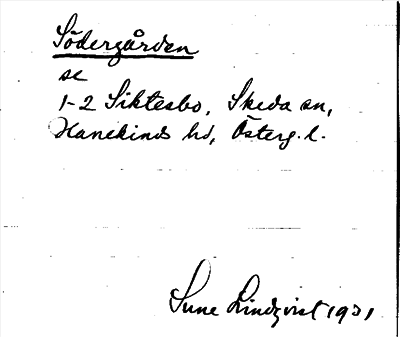 Södergården
se
1-2 Siktesbo, Skeda sn,
Hanekinds hd, Österg. l.
Sune Lindqvist 1931